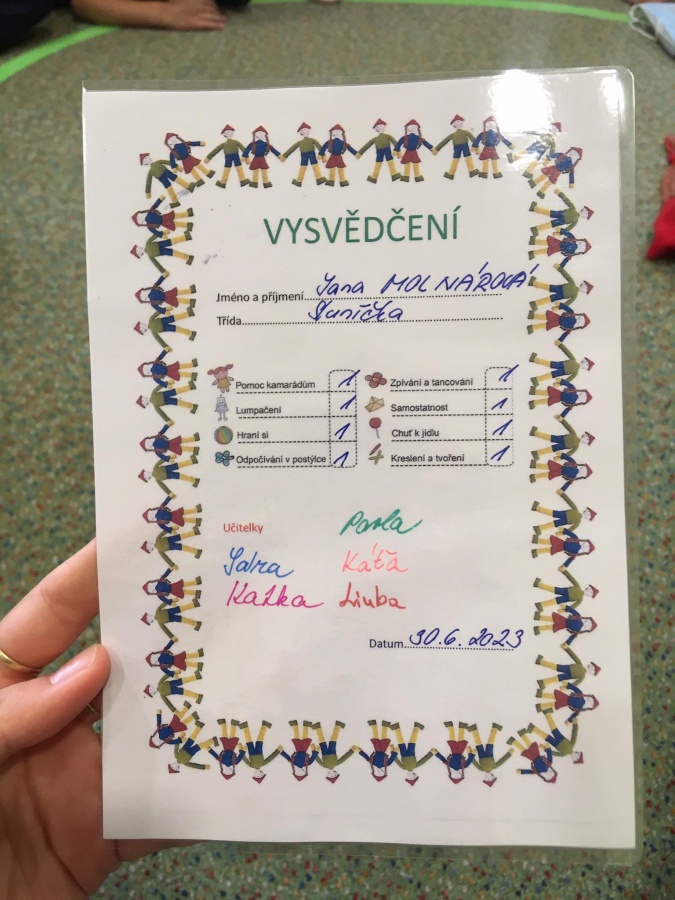 VYSVĚDČENÍ
Jméno a příjmení Jana MOLNÁROVÁ
Třída Sunička
Pomoc kamarádům 1 Zpívání a tancování 1
Lumpačení 1 Samostatnost 1
Hraní si 1 Chuť k jídlu 1
Odpočívání v postýlce 1 Kreslení a tvoření 1
Učitelky Pavla
Jarka Káťa
Katka Liuba
Datum 30.6.2023